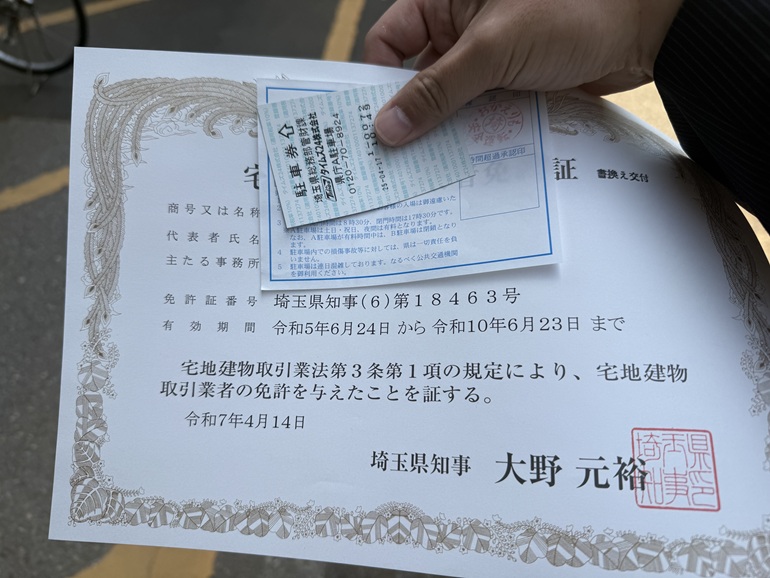 宅
証
書換え交付
商号又は名称
代表者氏名
主たる事務所
駐車券
埼玉県総務部管財課
タイムズ24株式会社
県庁A駐車場
0120-70-8924
時間超過承認印
の入場は御遠慮いた
は8時30分、閉門時間は17時30分です。
駐車場は土日・祝日、夜間は有料となります。
なお、A駐車場が有料時間中は、B駐車場は閉鎖となり
ます。
4 駐車場内での損傷事故等に対しては、県は一切責任を負
いません。
5 駐車場は連日混雑しております。なるべく公共交通機関
を御利用ください。
免許証番号 埼玉県知事(6)第18463号
有効期間 令和5年6月24日 から 令和10年6月23日 まで
宅地建物取引業法第3条第1項の規定により、宅地建物
取引業者の免許を与えたことを証する。
令和7年4月14日
埼玉県知事 大野 元裕
埼玉県
知事印